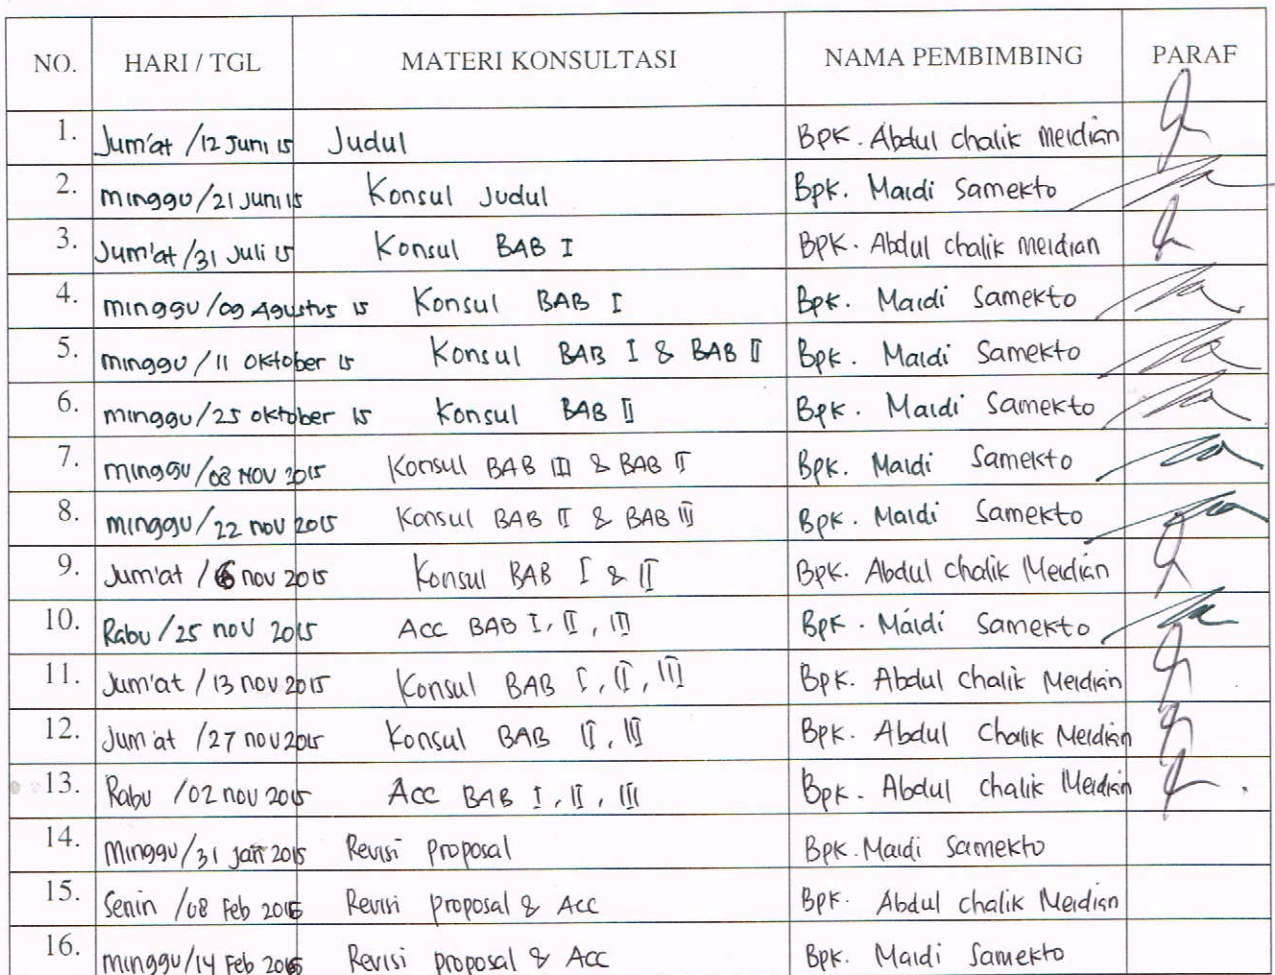 NO. HARI / TGL MATERI KONSULTASI NAMA PEMBIMBING PARAF
1. Jum'at /12 Juni 15 Judul Bpk. Abdul chalik Meidian
2. minggu/21 Juni 15 Konsul Judul Bpk. Maidi Samekto
3. Jum'at /31 Juli 15 Konsul BAB I Bpk. Abdul chalik meidian
4. minggu/09 Agustus 15 Konsul BAB I Bpk. Maidi Samekto
5. minggu/11 Oktober 15 Konsul BAB I & BAB II Bpk. Maidi Samekto
6. minggu/25 oktober 15 Konsul BAB II Bpk. Maidi Samekto
7. minggu/08 Nov 2015 Konsul BAB III & BAB II Bpk. Maidi Samekto
8. minggu/22 nov 2015 Konsul BAB II & BAB III Bpk. Maidi Samekto
9. Jum'at /6 nov 2015 Konsul BAB I & II Bpk. Abdul chalik Meidian
10. Rabu /25 nov 2015 Acc BAB I, II, III Bpk. Maidi Samekto
11. Jum'at /13 nov 2015 Konsul BAB I, II, III Bpk. Abdul Chalik Meidian
12. Jum'at /27 nov 2015 Konsul BAB II, III Bpk. Abdul Chalik Meidian
13. Rabu /02 nov 2015 Acc BAB I, II, III Bpk. Abdul chalik Meidian
14. Minggu/31 Jan 2015 Revisi Proposal Bpk. Maidi Samekto
15. Senin /08 Feb 2016 Revisi proposal & Acc Bpk. Abdul chalik Meidian
16. minggu/14 Feb 2016 Revisi proposal & Acc Bpk. Maidi Samekto